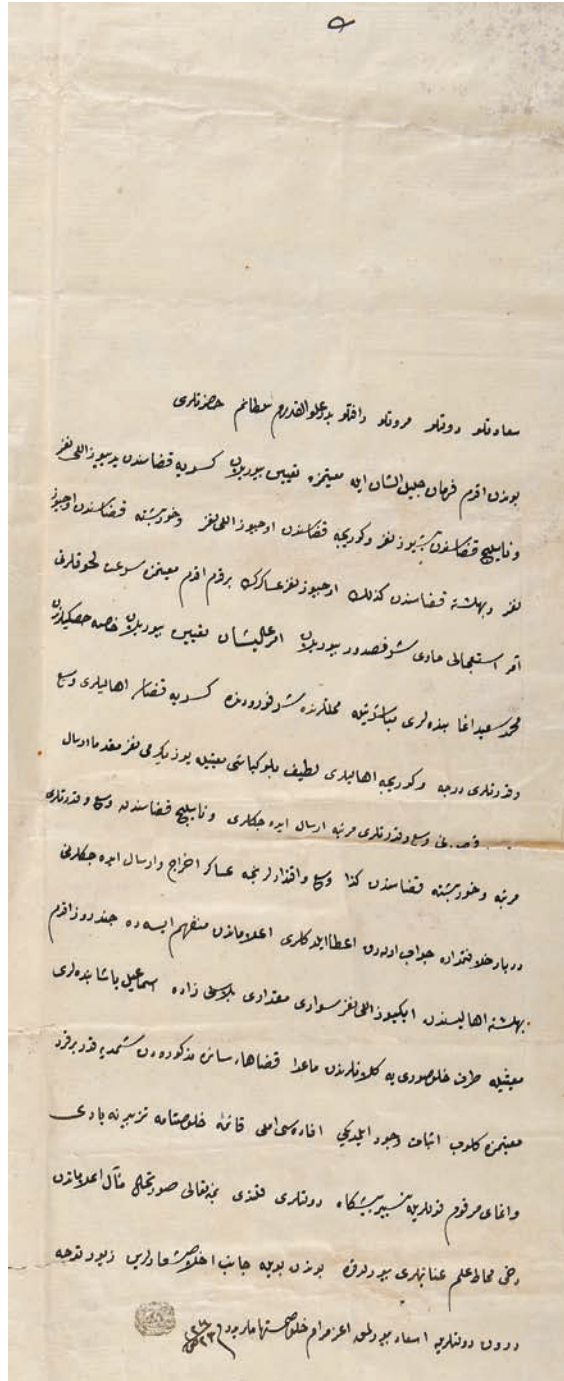 سعادتلو دولتلو مروتلو رأفتلو بدر علو القدرم سلطانم حضرتلری
بوندن اقدم فرمان جلیل الشان ایله معیتمزه تعیین بیوریلان کسریه قضاسندن یدیوز اللی نفر
و نابلیچ قضاسندن بشیوز نفر و کوریجه قضاسندن اوچیوز اللی نفر و خورپشته قضاسندن اوچیوز
نفر و بهلشته قضاسندن کذلك اوچیوز نفر عساکرك برقدم اقدم معیتمزه سرعت لحوقلرنی
آمر استعجالی حاوی شرفصدور بیوریلان امر عالیشان تعیین بیوریلان خاصه خصکیلرندن
محمد سعید اغا بنده لری مباشرتیله محللرنده شرفورودنده کسریه قضاسی اهالیلری وسع
و قدرتلری درجه و کوریجه اهالیلری لطیف بلوکباشی معیتیله یوز یکرمی نفر مقدما ارسال
وسع و قدرتلری مرتبه ارسال ایده جکلری و نابلیچ قضاسندن وسع و قدرتلری
مرتبه و خورپشته قضاسندن کذا وسع و اقتدارلرنجه عساکر اخراج و ارسال ایده جکلرنی
دربار خلافتمداره جواب اوله رق اعطا ایلدکلری اعلاملرندن منفهم ایسه ده چند روز اقدم
بهلشته اهالیسندن ایکیوز اللی نفر سواری مقداری زاده اسماعیل پاشا بنده لری
معیتیله طرف خلوصوری یه کلانلرندن ماعدا قضاهاء سائر مذکوره دن شمدی یه قدر برفرد
معیتمزه کلوب اثبات وجود ایلمدیکی افاده سی املی قائمه خلوصنامه ترتیبنه بادی
و اغای مرقوم قوللریله تسییر پیشکاه دولتلری قلندی بمنه تعالی صورتحال مآل اعلاملرندن
دخی محاط علم عنایتلری بیورلدقده بوندن بویله جانب اخلاصشعارلرین زیور توجه
درون دولتلریله اسعاد بیورلمق اعز مرام خلوصپرورانه مدر